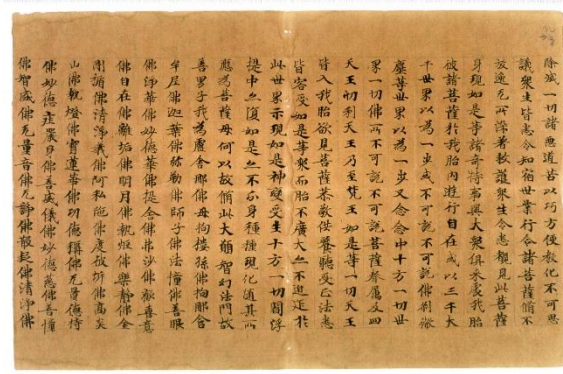 除滅一切諸惡道苦以巧方便教化不可思
議衆生皆悉令知宿世業行令諸菩薩脩不
放逸无所染著教誨衆生令悉覩見此菩薩
身現如是等諸奇特事與大衆俱來處我胎
彼諸菩薩於我胎內遊行自在或以三千大
千世界以為一步或不可說不可說佛剎微
塵等世界以為一步又念念中十方一切世
界一切佛所不可說不可說菩薩眷屬及四
天王忉利天王乃至梵王如是等一切天王
皆入我胎欲見菩薩恭敬供養聽受正法悉
皆容受如是等衆而胎不廣大亦不迫迮於
此世界示現如是神變受生十方一切閻浮
提中亦復如是亦不分身種種現化隨其所
應為菩薩母何以故脩此大願智幻法門故
善男子我為盧舍那佛母拘樓孫佛拘那含
牟尼佛迦葉佛弥勒佛師子佛法憧佛善眼
佛淨華佛妙德華佛提舍佛弗沙佛歡喜意
佛自在佛離垢佛明月佛執炬佛樂靜佛金
剛誦佛清淨義佛阿私陁佛度彼岸佛高炎
山佛執燈佛寶蓮華佛功德稱佛无量德持
佛妙德莊嚴身佛善威儀佛妙德慈佛善憧
佛智威佛无量音佛无諍佛散疑佛清淨佛